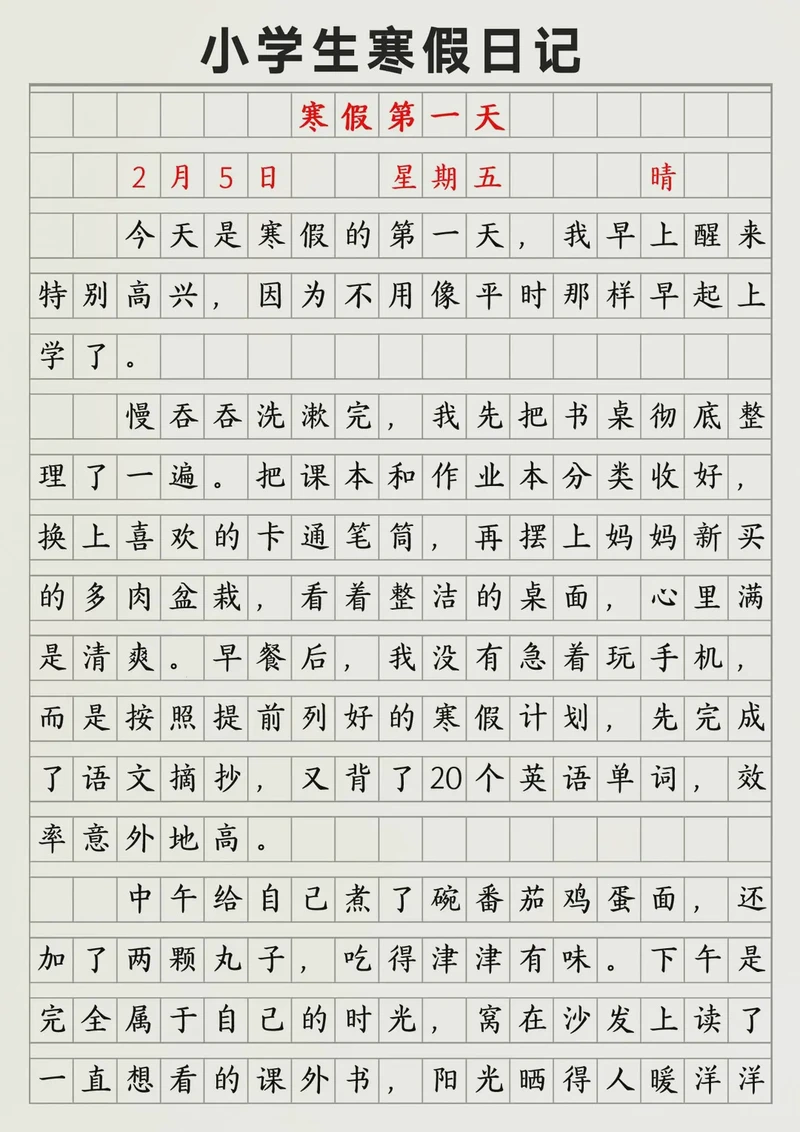 小学生寒假日记
寒假第一天
2月5日 星期五 晴
今天是寒假的第一天，我早上醒来
特别高兴，因为不用像平时那样早起上
学了。
慢吞吞洗漱完，我先把书桌彻底整
理了一遍。把课本和作业本分类收好，
换上喜欢的卡通笔筒，再摆上妈妈新买
的多肉盆栽，看着整洁的桌面，心里满
是清爽。早餐后，我没有急着玩手机，
而是按照提前列好的寒假计划，先完成
了语文摘抄，又背了20个英语单词，效
率意外地高。
中午给自己煮了碗番茄鸡蛋面，还
加了两颗丸子，吃得津津有味。下午是
完全属于自己的时光，窝在沙发上读了
一直想看的课外书，阳光晒得人暖洋洋